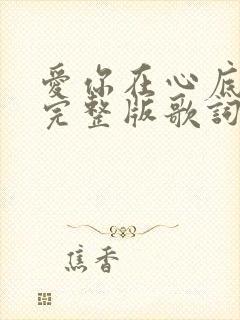 愛你在心底
完整版歌詞
焦香